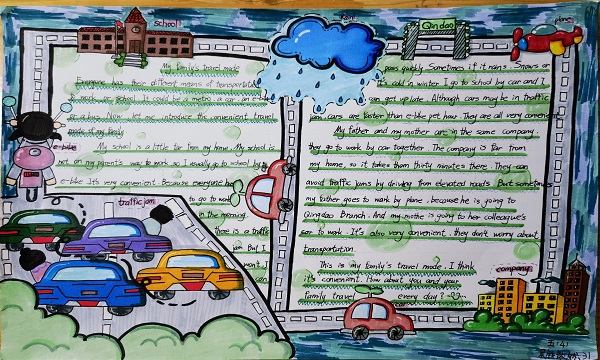 school
rain
Qingdao
plane
My family's travel mode
Everyone has their different means of transportation
It could be a metro, a car, an e-bike
or a bus. Now, let me introduce the convenient travel
mode of my family.
e-bike
My school is a little far from my home. My school is
not on my parent's way to work so I usually go to school by
e-bike. It's very convenient. Because everyone has
to go to work
in the morning.
there is a traffic
jam. But I
want, I
traffic jam
pass quickly. Sometimes if it rains. Snows or
it's cold in winter. I go to school by car and I
can get up late. Although cars may be in traffic
jam, cars are faster than e-bike per hour. They are all very convenient
My father and my mother are in the same company.
they go to work by car together. The company is far from
my home, so it takes them thirty minutes there. They can
avoid traffic jams by driving from elevated roads. But sometimes
my father goes to work by plane. because he is going to
Qingdao Branch. And my mother is going to her colleague's
car to work. It's also very convenient. they don't worry about
transportation.
This is my family's travel mode. I think
it's convenient. How about you and your
family travel every day?
company